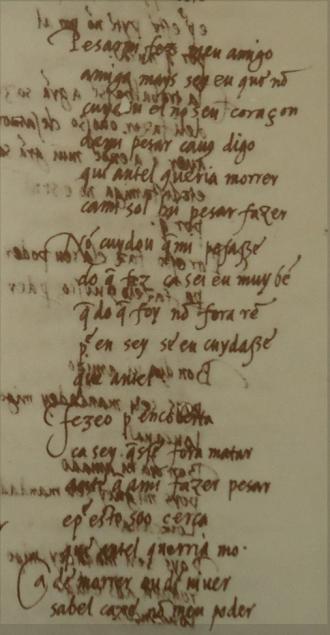 Pesami fez meu amigo
amiga mays sey eu que nō
cuydou el no seu coraçon
dami pesar cauꝯ digo
qui antel queria morrer
cami sol hū pesar fazer
Nō cuydou q̄mi pesasse
do q̄ fez ca sei eu muy bē
q̄ do q̄ foy nō fora rē
p̄ en sey se en cuydasse
que antel
fezeo p̄ encuberta
ca sey q̄sse fora matar
ante a ami fazer pesar
ep̄ esto soo certa
que antel querria mo
Ca de morrer ou de uiuer
sabel caxe nō meu poder